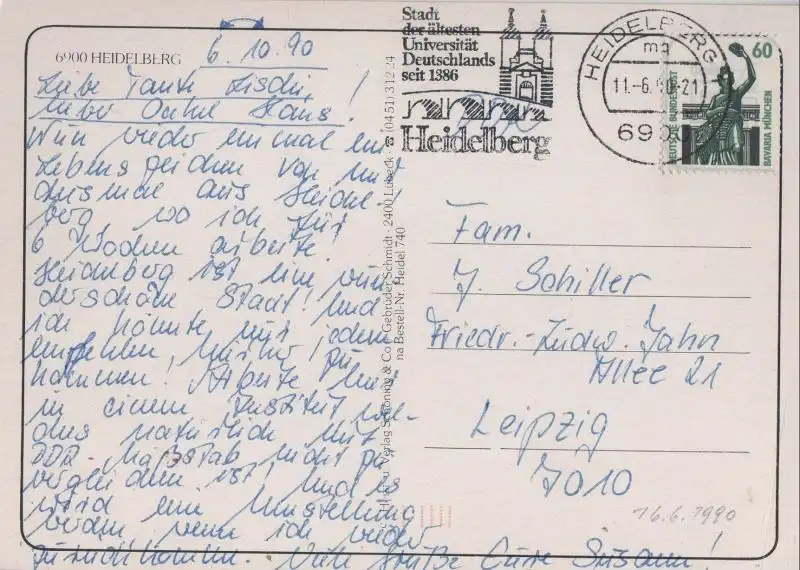 6900 HEIDELBERG
6.10.90
Liebe Tante Lischi,
lieber Onkel Hans!
Nun wieder einmal ein
Lebenszeichen von mir
diesmal aus Heidel-
berg, wo ich für
6 Wochen arbeite!
Heidelberg ist eine wun-
derschöne Stadt! Und
ich könnte nur jedem
empfehlen, hierher zu
kommen! Arbeite hier
in einem Institut wel-
ches natürlich mit
DDR-Maßstab nicht zu
vergleichen ist! Und es
wird eine Umstellung
werden wenn ich wieder
zurückkomme. Viele Grüße Eure Susann!
Schöning & Co + Gebrüder Schmidt · 2400 Lübeck ☎ (0451) 31224
na Bestell-Nr. Heidel 740
Stadt
der ältesten
Universität
Deutschlands
seit 1386
Heidelberg
HEIDELBERG
ma
11.-6.90-21
690
60
DEUTSCHE BUNDESPOST
BAVARIA MÜNCHEN
Fam.
J. Schiller
Friedr.-Ludw. Jahn
Allee 21
Leipzig
7010
16.6.1990